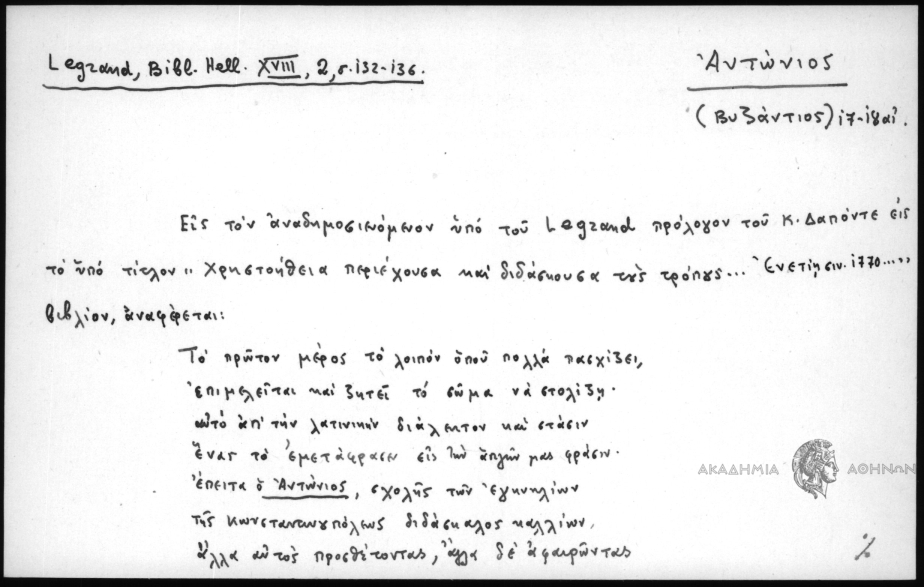 Legrand, Bibl. Hell. XVIII, 2, σ. 132-136.
Ἀντώνιος
(Βυζάντιος) 17-18 αἰ.
Εἰς τὸν ἀναδημοσιευόμενον ὑπὸ τοῦ Legrand πρόλογον τοῦ Κ. Δαπόντε εἰς
τὸ ὑπὸ τίτλον " Χρηστοήθεια περιέχουσα καὶ διδάσκουσα τοὺς τρόπους... Ἐνετίησιν. 1770....."
βιβλίον, ἀναφέρεται:
Τὸ πρῶτον μέρος τὸ λοιπὸν ὁποῦ πολλὰ πασχίζει,
ἐπιμελεῖται καὶ ζητεῖ τὸ σῶμα νὰ στολίζῃ·
αὐτὸ ἀπ' τὴν λατινικὴν διάλεκτον καὶ στάσιν
ἕνας τὸ ἐμετάφρασεν εἰς τὴν ἁπλῆν μας φράσιν·
ἔπειτα ὁ Ἀντώνιος, σχολῆς τῶν ἐγκυκλίων
τῆς Κωνσταντινουπόλεως διδάσκαλος καλλίων,
ἄλλα αὐτὸς προσθέτοντας, ἄλλα δὲ ἀφαιρῶντας
ΑΚΑΔΗΜΙΑ ΑΘΗΝΩΝ
%